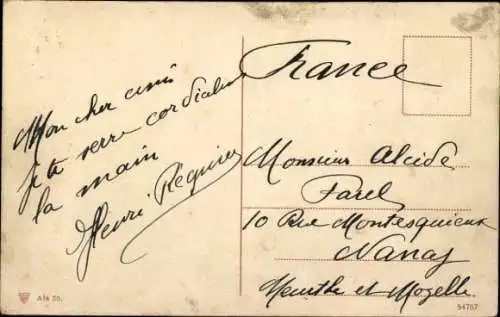 Mon cher ami
je te serre cordialem
la main
Henri Requier
France
Monsieur Alcide
Farel
10 Rue Montesquieux
Nanay
Meurthe et Mozelle
Ala 20.
54767